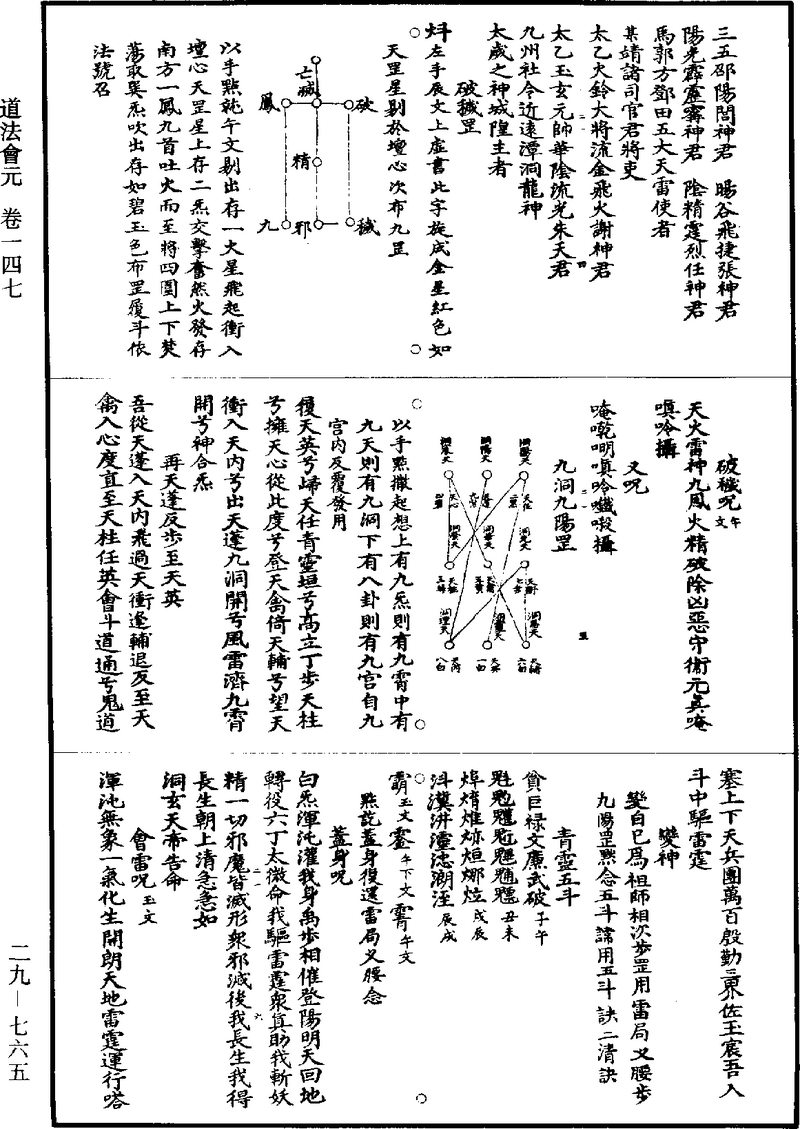 道法會元　卷一四七
三五邵陽閻神君　暘谷飛捷張神君
陽光霹靂甯神君　陰精霆烈任神君
馬郭方鄧田五大天雷使者
某靖諸司官君將吏
太乙火鈴大將流金飛火謝神君
太乙玉玄元帥華陰流光朱天君
九州社令近遠潭洞龍神
太歲之神城隍主者
破穢罡
左手辰文上虛書此字旋成金星紅色如
天罡星剔於壇心次布九罡
亡滅
鳳　破
精
九　邪　穢
以手點就午文剔出存一大星飛起衝入
壇心天罡星上存二炁交擊奮然火發存
南方一鳳九首吐火而至將四圍上下焚
蕩取巽炁吹出存如碧玉色布罡履斗依
法號召
破穢呪午文
天火雷神九鳳火精破除凶惡守衛元真唵
嗔唥攝
又呪
唵乾明嗔唥攝
九洞九陽罡
以手點撒起想上有九炁則有九霄中有
九天則有九洞下有八卦則有九宮自九
宮內反覆發用
履天英兮歸天任青靈垣兮高立丁步天柱
兮擁天心從此度兮登天禽倚天輔兮望天
衝入天內兮出天蓬九洞開兮風雷濟九霄
開兮神合炁
再天蓬反步至天英
吾從天蓬入天內飛過天衝逢輔退反至天
禽入心度直至天柱任英會斗道通兮鬼道
塞上下天兵團萬百殷勤三界佐玉宸吾入
斗中驅雷霆
變神
變自己為祖師相次步罡用雷局叉腰步
九陽罡點念五斗諱用五斗訣二清訣
青靈五斗
貪巨祿文廉武破子午
丑未
戌辰
辰戌
玉文　午下文　午文
點訖蓋身復還雷局叉腰念
蓋身呪
白炁渾沌灌我身禹步相催登陽明天回地
轉役六丁太微命我驅雷霆眾真助我斬妖
精一切邪魔皆滅形眾邪滅後我長生我得
長生朝上清急急如
洞玄天帝告命
會雷呪玉文
渾沌無象一氣化生開朗天地雷霆運行嗒
二九－七六五